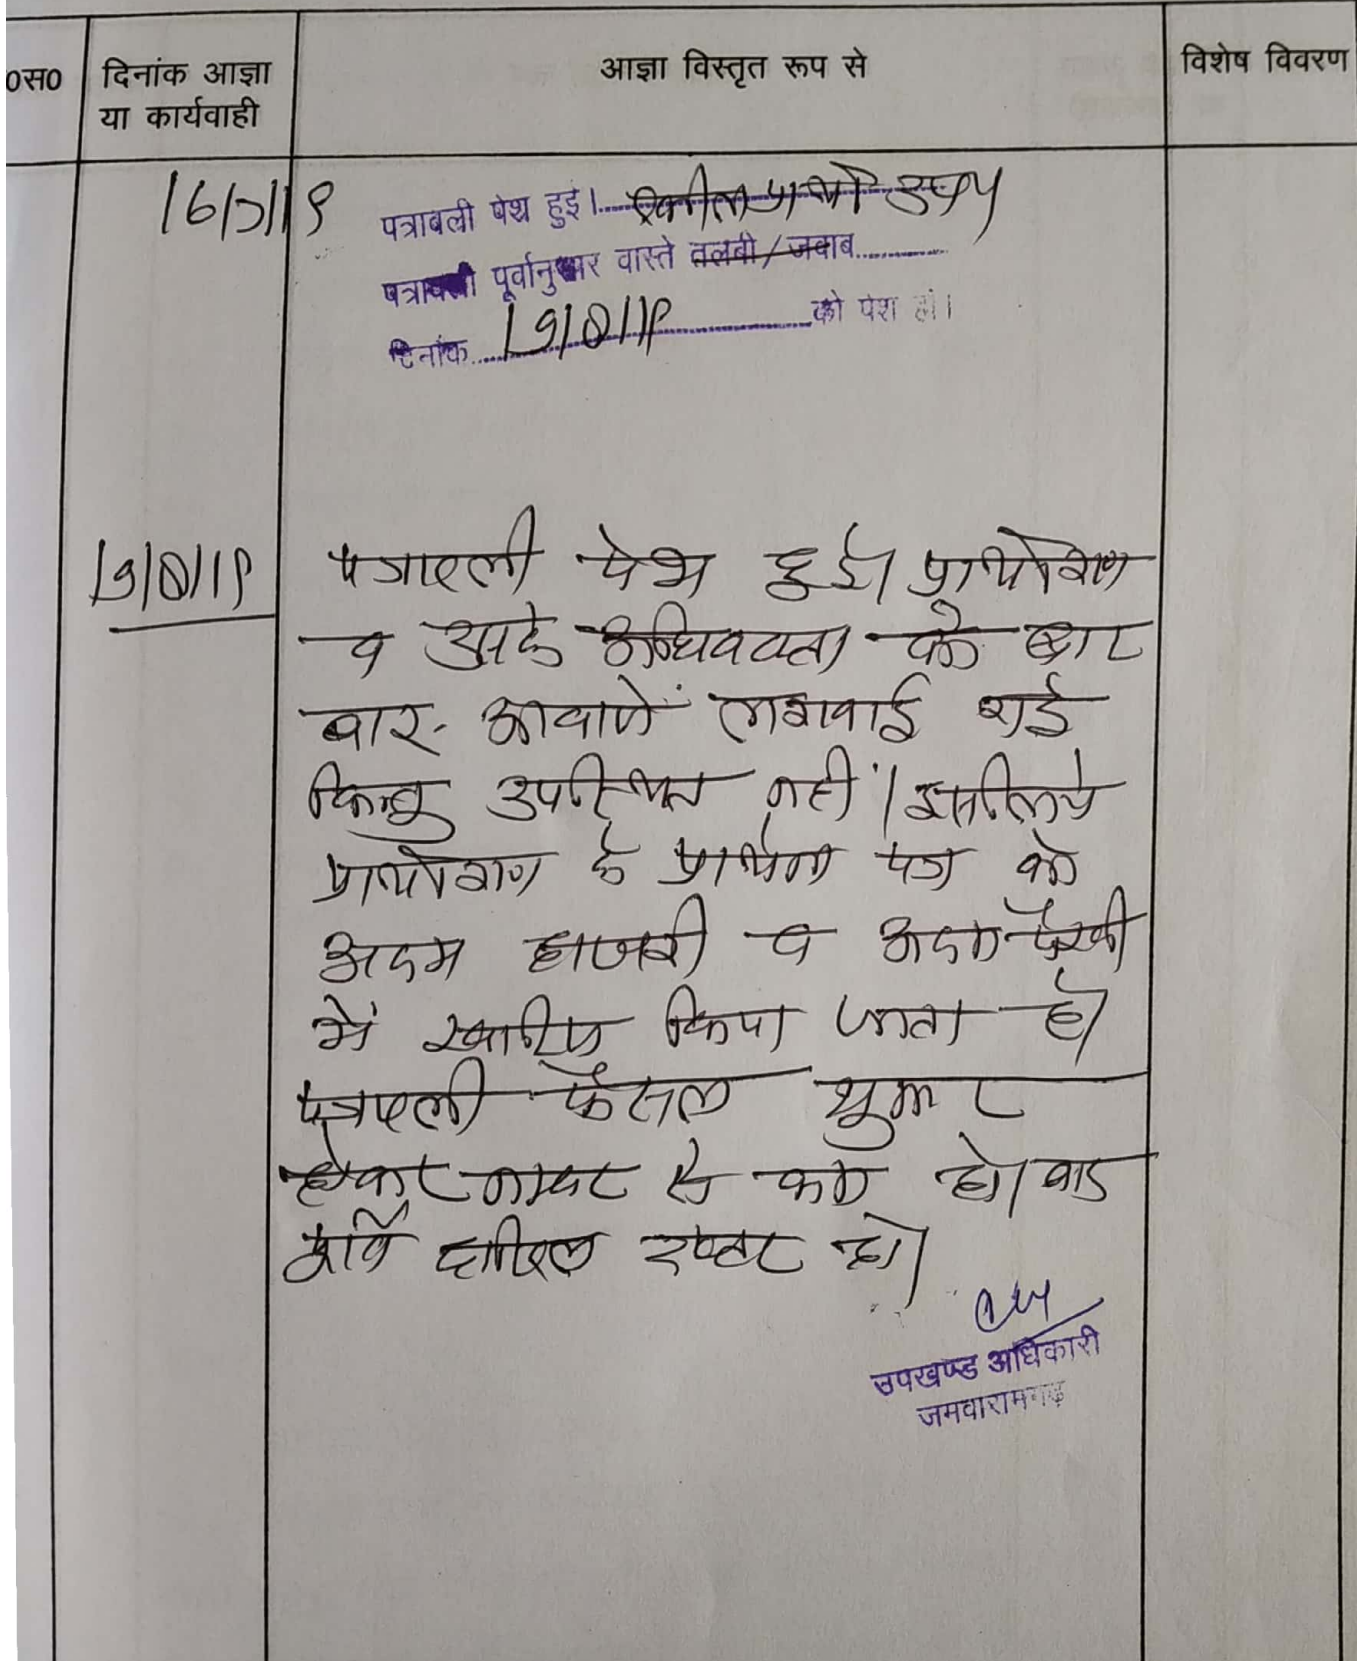 ०स०
दिनांक आज्ञा
या कार्यवाही
आज्ञा विस्तृत रूप से
विशेष विवरण
16/7/19
पत्रावली पेश हुई। वकील प्रार्थी उप०
पत्रावली पूर्वानुसार वास्ते तलबी/जवाब
दिनांक 19/8/19 को पेश हो।
19/8/19
पत्रावली पेश हुई। प्रार्थीगण
व उसके अधिवक्ता को बार
बार आवाजें लगवाई गई
किन्तु उपस्थित नहीं। इसलिये
प्रार्थीगण के प्रार्थना पत्र को
अदम हाजरी व अदम पैरवी
में खारिज किया जाता है।
पत्रावली फैसल शुमार
होकर नम्बर से कम हो। बाद
दाखिल दफ्तर हो।
उपखण्ड अधिकारी
जमवारामगढ़